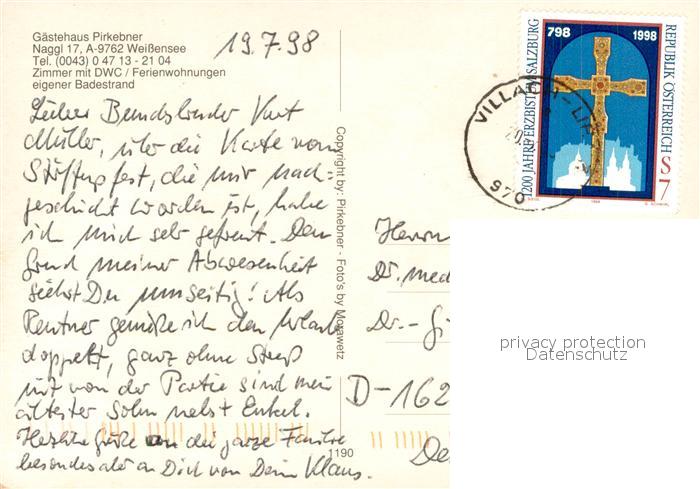 Gästehaus Pirkebner
Naggl 17, A-9762 Weißensee
Tel. (0043) 0 47 13 - 21 04
Zimmer mit DWC / Ferienwohnungen
eigener Badestrand
19.7.98
Lieber Bundesbruder Kurt
Müller, über die Karte vom
Stiftungsfest, die mir nach=
geschickt worden ist, habe
ich mich sehr gefreut. Den
Grund meiner Abwesenheit
siehst Du umseitig! Als
Rentner genieße ich den Urlaub
doppelt, ganz ohne Streß
mit von der Partie sind mein
ältester Sohn nebst Enkel.
Herzliche Grüße an die ganze Familie
besonders aber an Dich von Deinem Klaus.
Copyright by: Pirkebner - Foto's by Morawetz
1190
798 1998
1200 JAHRE ERZBISTUM SALZBURG
REPUBLIK ÖSTERREICH
S 7
VILLACH
970
Herrn
Dr. med
Dr.-
D-162
privacy protection
Datenschutz